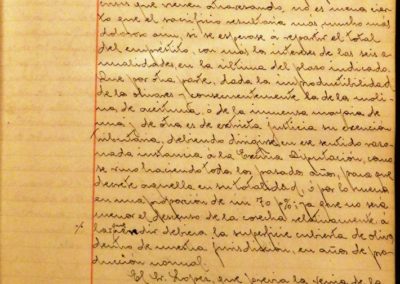 cias que vienen atravesando, no es menos cier-
to que el sacrificio resultaria más mucho más
doloroso aun, si se esperase á repartir el total
del empréstito, con más los intereses de las seis a-
nualidades, en la última del plazo indicado.
Que por otra parte, dada la improductibilidad
de los olivares y consecuentemente la de los moli-
nos de aceituna, ó de la inmensa mayoria de
unos y de otros es de extricta justicia su exencion
tributaria, debiendo dirigirse en ese sentido razo-
nada instancia á la Excma Diputacion, como
se vino haciendo todos los pasados años, para que
decrete aquella en su totalidad, ó por lo menos
en una proporcion de un 70 p%; ya que no será
menor el descenso de la cosecha relativamente á
la que rendir debiera la superficie cubierta de olivo,
dentro de nuestra jurisdiccion, en años de pro-
duccion normal.
El Sr. Lopez, que previa la venia de la